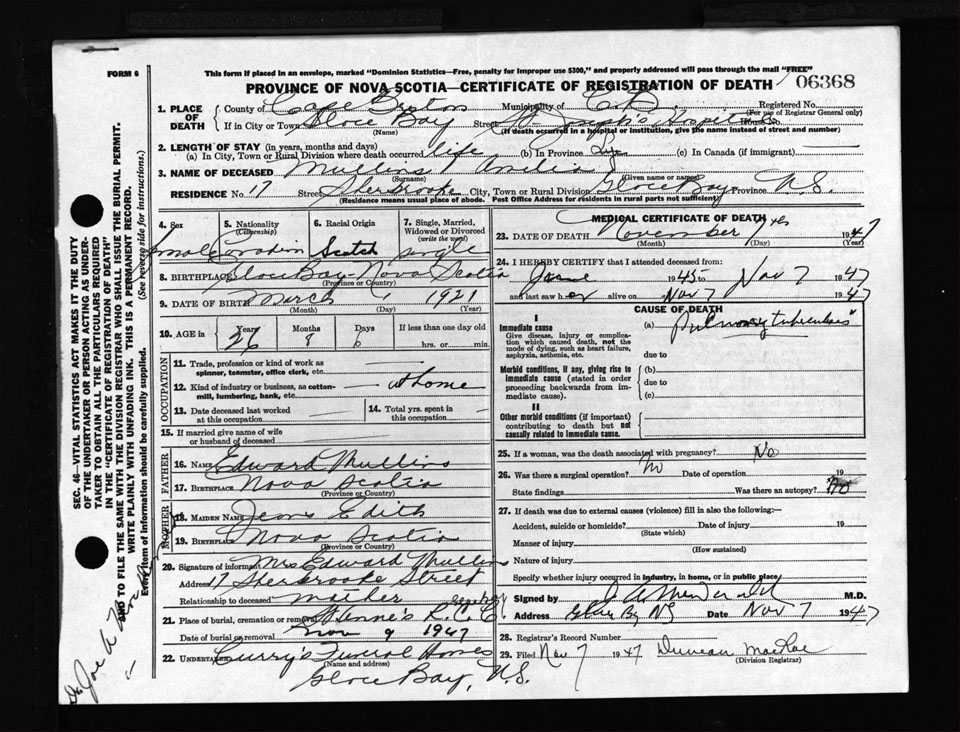 FORM 6
This form if placed in an envelope, marked "Dominion Statistics—Free, penalty for improper use $300," and properly addressed will pass through the mail "FREE"
PROVINCE OF NOVA SCOTIA—CERTIFICATE OF REGISTRATION OF DEATH 06368
1. PLACE OF DEATH
County of Cape Breton Municipality of C.B. Registered No.
(For use of Registrar General only)
If in City or Town Glace Bay Street St Joseph's Hospital House No.
(Name) (If death occurred in a hospital or institution, give the name instead of street and number)
2. LENGTH OF STAY (in years, months and days)
(a) In City, Town or Rural Division where death occurred life (b) In Province Life (c) In Canada (if immigrant)
3. NAME OF DECEASED Mullins
(Surname) (Given name or names)
RESIDENCE No. 17 Street Sherbrooke City, Town or Rural Division Glace Bay Province N.S.
(Residence means usual place of abode. Post Office Address for residents in rural parts not sufficient)
4. Sex 5. Nationality (Citizenship) 6. Racial Origin 7. Single, Married, Widowed or Divorced (write the word)
Female Canadian Scotch single
8. BIRTHPLACE Glace Bay Nova Scotia
(Province or Country)
9. DATE OF BIRTH March 1 1921
(Month) (Day) (Year)
10. AGE in Years Months Days If less than one day old
26 8 6 hrs. or min.
OCCUPATION
11. Trade, profession or kind of work as spinner, teamster, office clerk, etc.
12. Kind of industry or business, as cotton-mill, lumbering, bank, etc. at home
13. Date deceased last worked at this occupation
14. Total yrs. spent in this occupation
15. If married give name of wife or husband of deceased
FATHER
16. NAME Edward Mullins
17. BIRTHPLACE Nova Scotia
(Province or Country)
MOTHER
18. MAIDEN NAME Jean Edith
19. BIRTHPLACE Nova Scotia
(Province or Country)
20. Signature of informant Mrs Edward Mullins
Address 17 Sherbrooke Street
Relationship to deceased mother
21. Place of burial, cremation or removal St Anne's R.C.
Date of burial or removal Nov 9 1947
22. UNDERTAKER Curry's Funeral Home
(Name and address)
Glace Bay, N.S.
MEDICAL CERTIFICATE OF DEATH
23. DATE OF DEATH November 7th 1947
(Month) (Day) (Year)
24. I HEREBY CERTIFY that I attended deceased from:
June 1945 to Nov 7 1947
and last saw her alive on Nov 7 1947
CAUSE OF DEATH
I
Immediate cause
Give disease, injury or complication which caused death, not the mode of dying, such as heart failure, asphyxia, asthenia, etc.
(a) Pulmonary tuberculosis
due to
Morbid conditions, if any, giving rise to immediate cause (stated in order proceeding backwards from immediate cause).
(b)
due to
(c)
II
Other morbid conditions (if important) contributing to death but not causally related to immediate cause.
25. If a woman, was the death associated with pregnancy? No
26. Was there a surgical operation? No Date of operation 19
State findings Was there an autopsy? No
27. If death was due to external causes (violence) fill in also the following:—
Accident, suicide or homicide? Date of injury 19
(State which)
Manner of injury
(How sustained)
Nature of injury
Specify whether injury occurred in industry, in home, or in public place
Signed by M.D.
Address Glace Bay NS Date Nov 7 1947
28. Registrar's Record Number
29. Filed Nov 7 1947 Duncan MacRae
(Division Registrar)
SEC. 46—VITAL STATISTICS ACT MAKES IT THE DUTY
OF THE UNDERTAKER OR PERSON ACTING AS UNDER-
TAKER TO OBTAIN ALL THE PARTICULARS REQUIRED
IN THE "CERTIFICATE OF REGISTRATION OF DEATH"
AND TO FILE THE SAME WITH THE DIVISION REGISTRAR WHO SHALL ISSUE THE BURIAL PERMIT.
WRITE PLAINLY WITH UNFADING INK. THIS IS A PERMANENT RECORD.
Every item of information should be carefully supplied. (See reverse side for instructions.)
Dr. Joe A